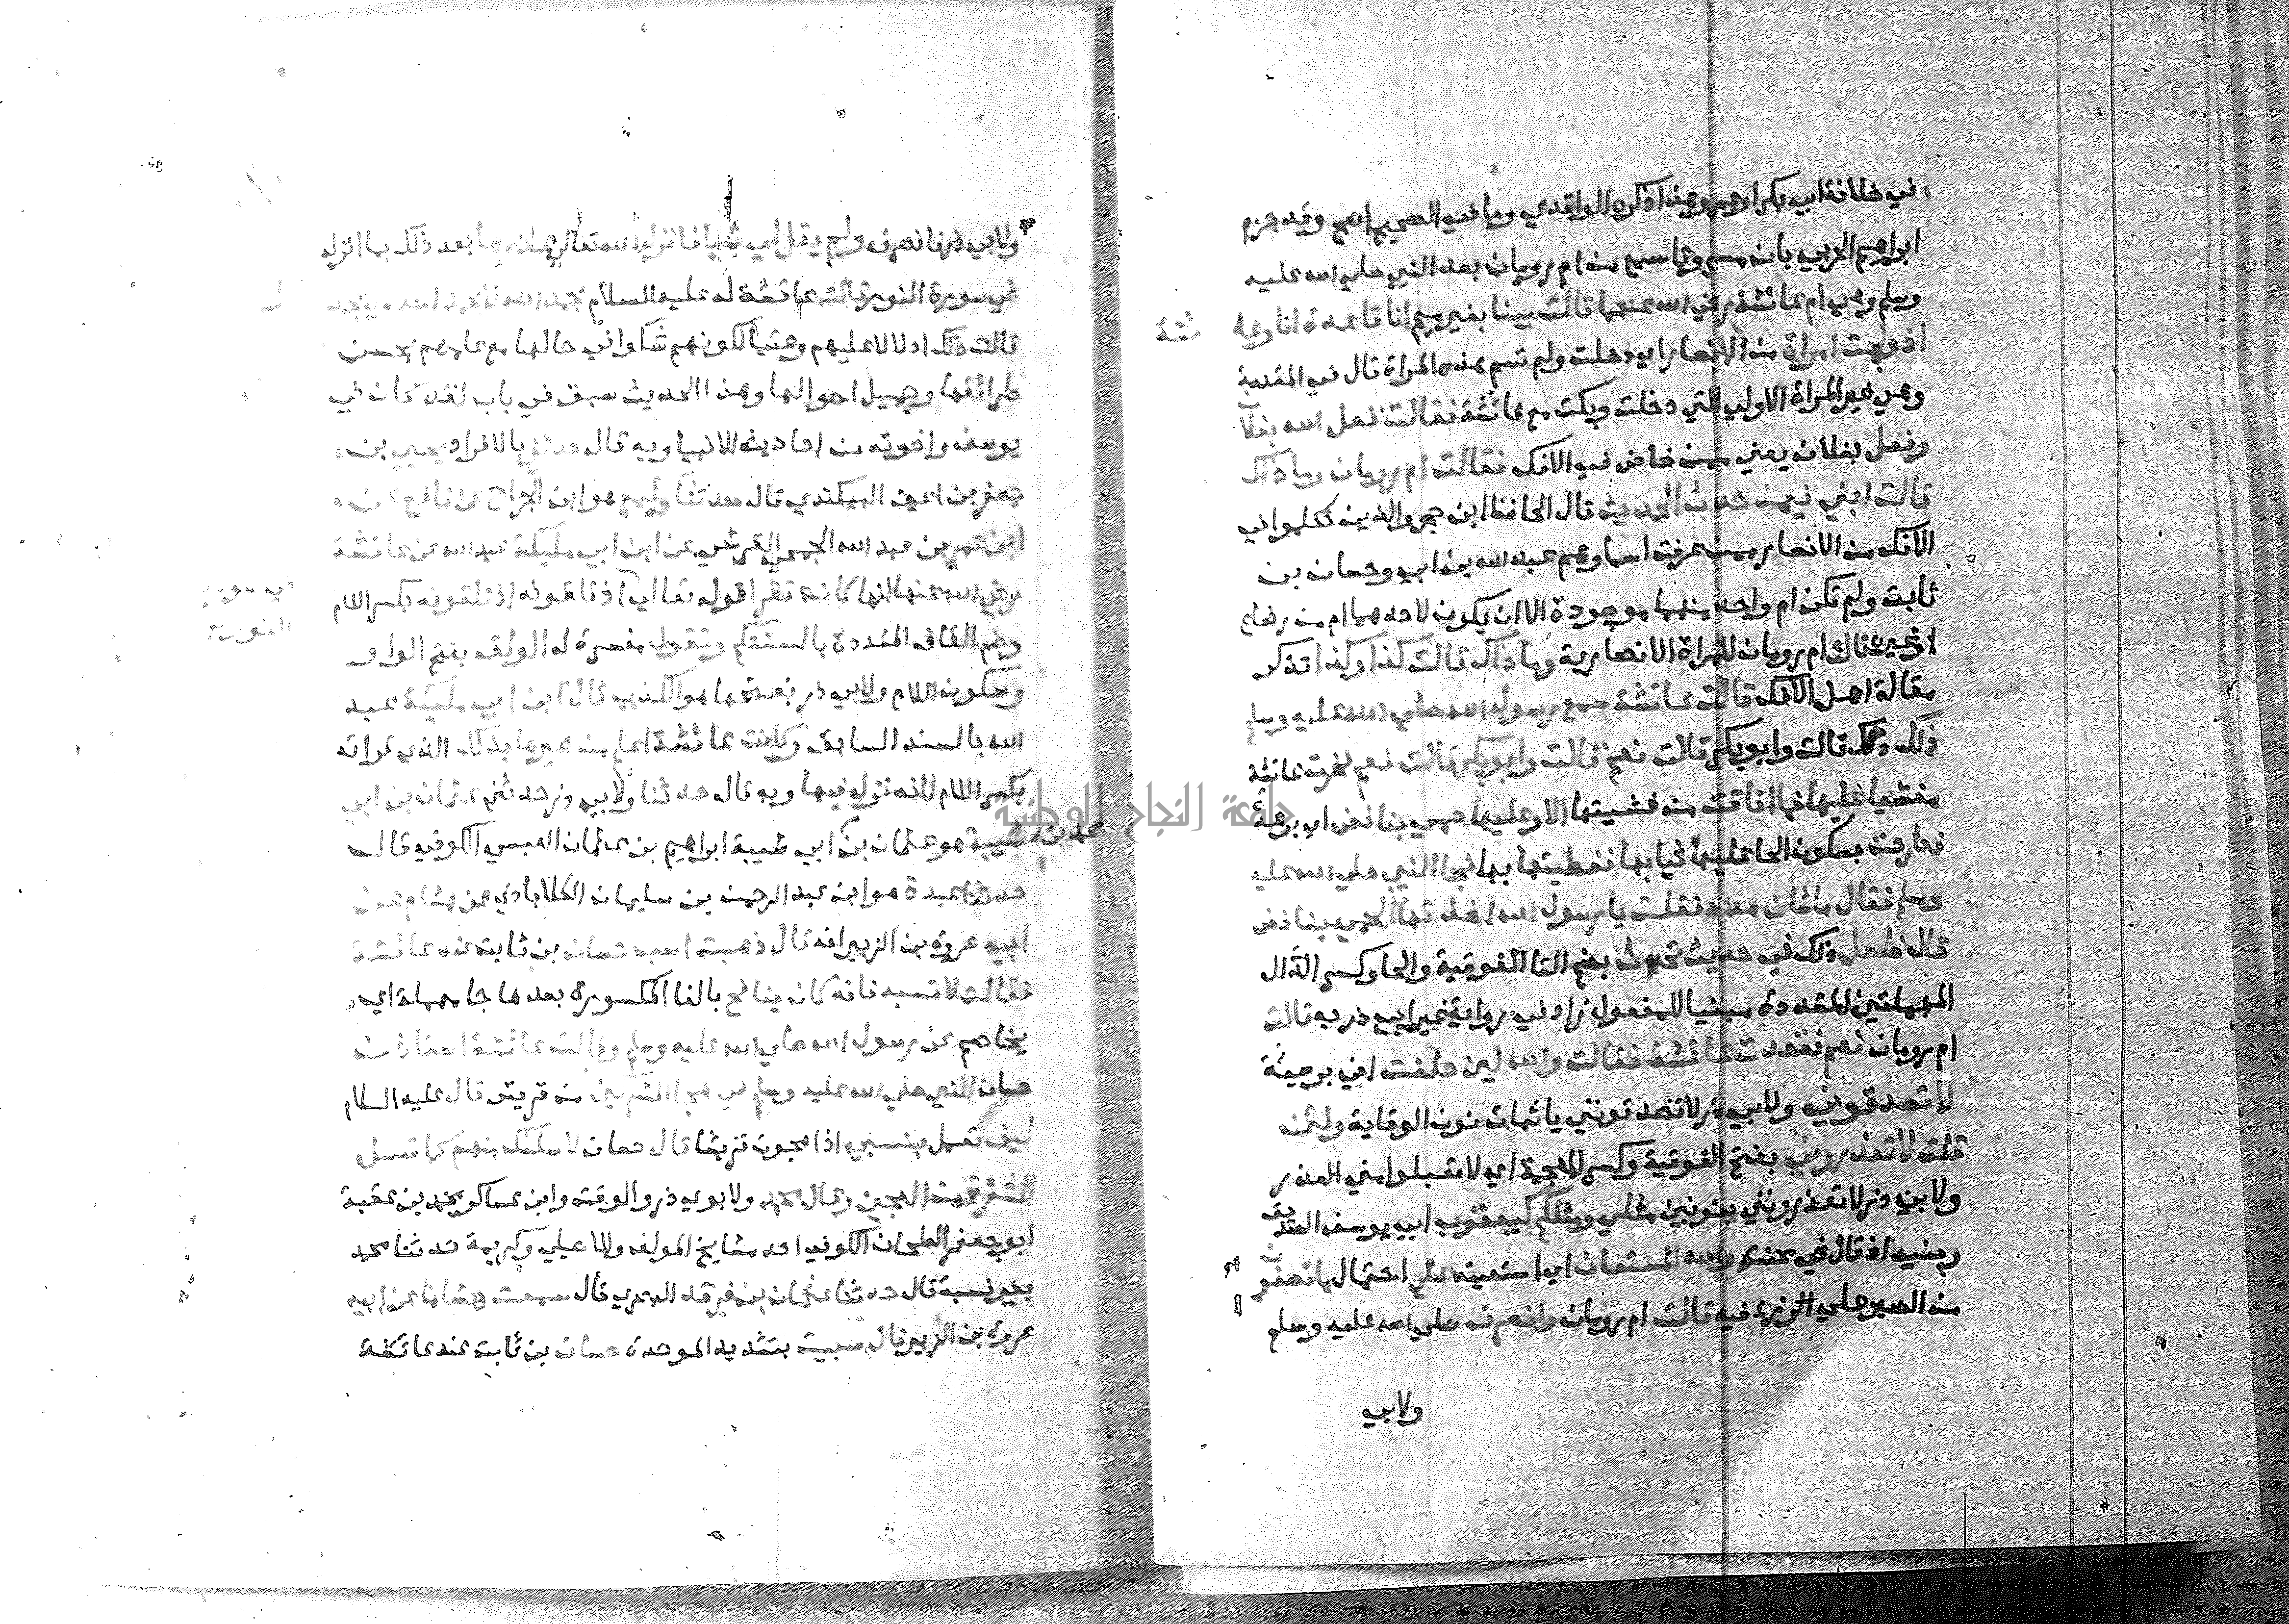 في خلافة ابي بكر اوهم وعنه اذكره الواقدي وما في الصحيح اصح وقد جزم
ابراهيم الحربي بان مسروقا سمع من ام رومان بعد النبي صلي الله عليه
وسلم وهي ام عائشة رضي الله عنهما قالت بينا بغير ميم انا قاعدة انا وعا
ئشة
اذ ولجت امراة من الانصار اي دخلت ولم تسم هذه المراة قال في المقدمة
وهي غير المراة الاولي التي دخلت وبكت مع عائشة فقالت فعل الله بفلان
وفعل بفلان يعني ممن خاض في الافك فقالت ام رومان وما ذاك
قالت ابني فيمن حدث الحديث قال الحافظ ابن حجر والذين تكلموا في
الافك من الانصار ممن عرفت اسماؤهم عبد الله بن ابي وحسان بن
ثابت ولم تكن ام واحد منهما موجودة الا ان يكون لاحدهما ام من رضاع
او غيره قالت ام رومان للمراة الانصارية وما ذاك قالت كذا وكذا تذكر
مقالة اهل الافك قالت عائشة سمع رسول الله صلي الله عليه وسلم
ذلك قالت وابو بكر قالت نعم قالت وابو بكر قالت نعم فخرت عائشة
مغشيا عليها فما افاقت من غشيتها الا وعليها حمي بنافض اي برعدة
فطرحت بسكون الحا عليها ثيابها فغطيتها بها فجا النبي صلي الله عليه
وسلم فقال ما شان هذه فقلت يا رسول الله اخذتها الحمي بنافض
قال فلعل ذلك في حديث تحدث بضم التا الفوقية والحا وكسر الدال
المهملتين المشددة مبنيا للمفعول زاد في رواية غير ابي ذر به قالت
ام رومان نعم فقعدت عائشة فقالت والله لين حلفت اني بريئة
لا تصدقوني ولابي ذر لا تصدقونني باثبات نون الوقاية ولئن
قلت لا تعذروني بفتح الفوقية وكسر المعجمة اي لا تقبلوا مني العذر
ولابي ذر لا تعذرونني بنونين مثلي ومثلكم كيعقوب ابي يوسف الصديق
وبنيه اذ قال في محنته والله المستعان اي استعينه علي احتمال ما تصفون
من الصبر علي الرزء فيه قالت ام رومان وانصرف صلي الله عليه وسلم
ولابي
ولابي ذر فانصرف ولم يقل لي شيا فانزل الله تعالي عذرها بعد ذلك بما انزله
في سورة النور قالت عائشة له عليه السلام بحمد الله لا بحمد احد ولا بحمدك
قالت ذلك ادلالا عليهم وعتبا لكونهم شكوا في حالها مع علمهم بحسن
طرائقها وجميل احوالها وهذا الحديث سبق في باب لقد كان في
يوسف واخوته من احاديث الانبيا وبه قال حدثني بالافراد يحيي بن
جعفر بن اعين البيكندي قال حدثنا وكيع هو ابن الجراح عن نافع عن
ابن عمر بن عبد الله الجمحي القرشي عن ابن ابي مليكة عبد الله عن عائشة
رضي الله عنها انها كانت تقرا قوله تعالي اذ تلقونه اذ تلقونه بكسر اللام
وضم القاف المشددة بالسنتكم وتقول مفسرة له الولق بفتح الواو
وسكون اللام ولابي ذر بفتحها هو الكذب قال ابن ابي مليكة عبد
الله بالسند السابق وكانت عائشة اعلم من غيرها بذلك الذي قراته
بكسر اللام لانه نزل فيها وبه قال حدثنا ولابي ذر حدثني عثمان بن ابي
شيبة هو عثمان بن ابي شيبة ابراهيم بن عثمان العبسي الكوفي قال
محمد بن
حدثنا عبدة هو ابن عبد الرحمن بن سليمان الكلابادي عن هشام عن
ابيه عروة بن الزبير انه قال ذهبت اسب حسان بن ثابت عند عائشة
فقالت لا تسبه فانه كان ينافح بالفا المكسورة بعدها حا مهملة اي
يخاصم عن رسول الله صلي الله عليه وسلم وقالت عائشة استاذن
حسان النبي صلي الله عليه وسلم في هجا المشركين من قريش قال عليه السلام
كيف تعمل بنسبي اذا هجوت قريشا قال حسان لاسلنك منهم كما تسل
الشعرة من العجين وقال محمد ولابوي ذر والوقت وابن عساكر محمد بن عقبة
ابو جعفر الطحان الكوفي احد مشايخ المولف وللاصيلي وكريمة حدثنا محمد
بغير نسبة قال حدثنا عثمان بن فرقد البصري قال سمعت هشاما عن ابيه
عروة بن الزبير قال سببت بتشديد الموحدة حسان بن ثابت عند عائشة
جامعة النجاح الوطنية